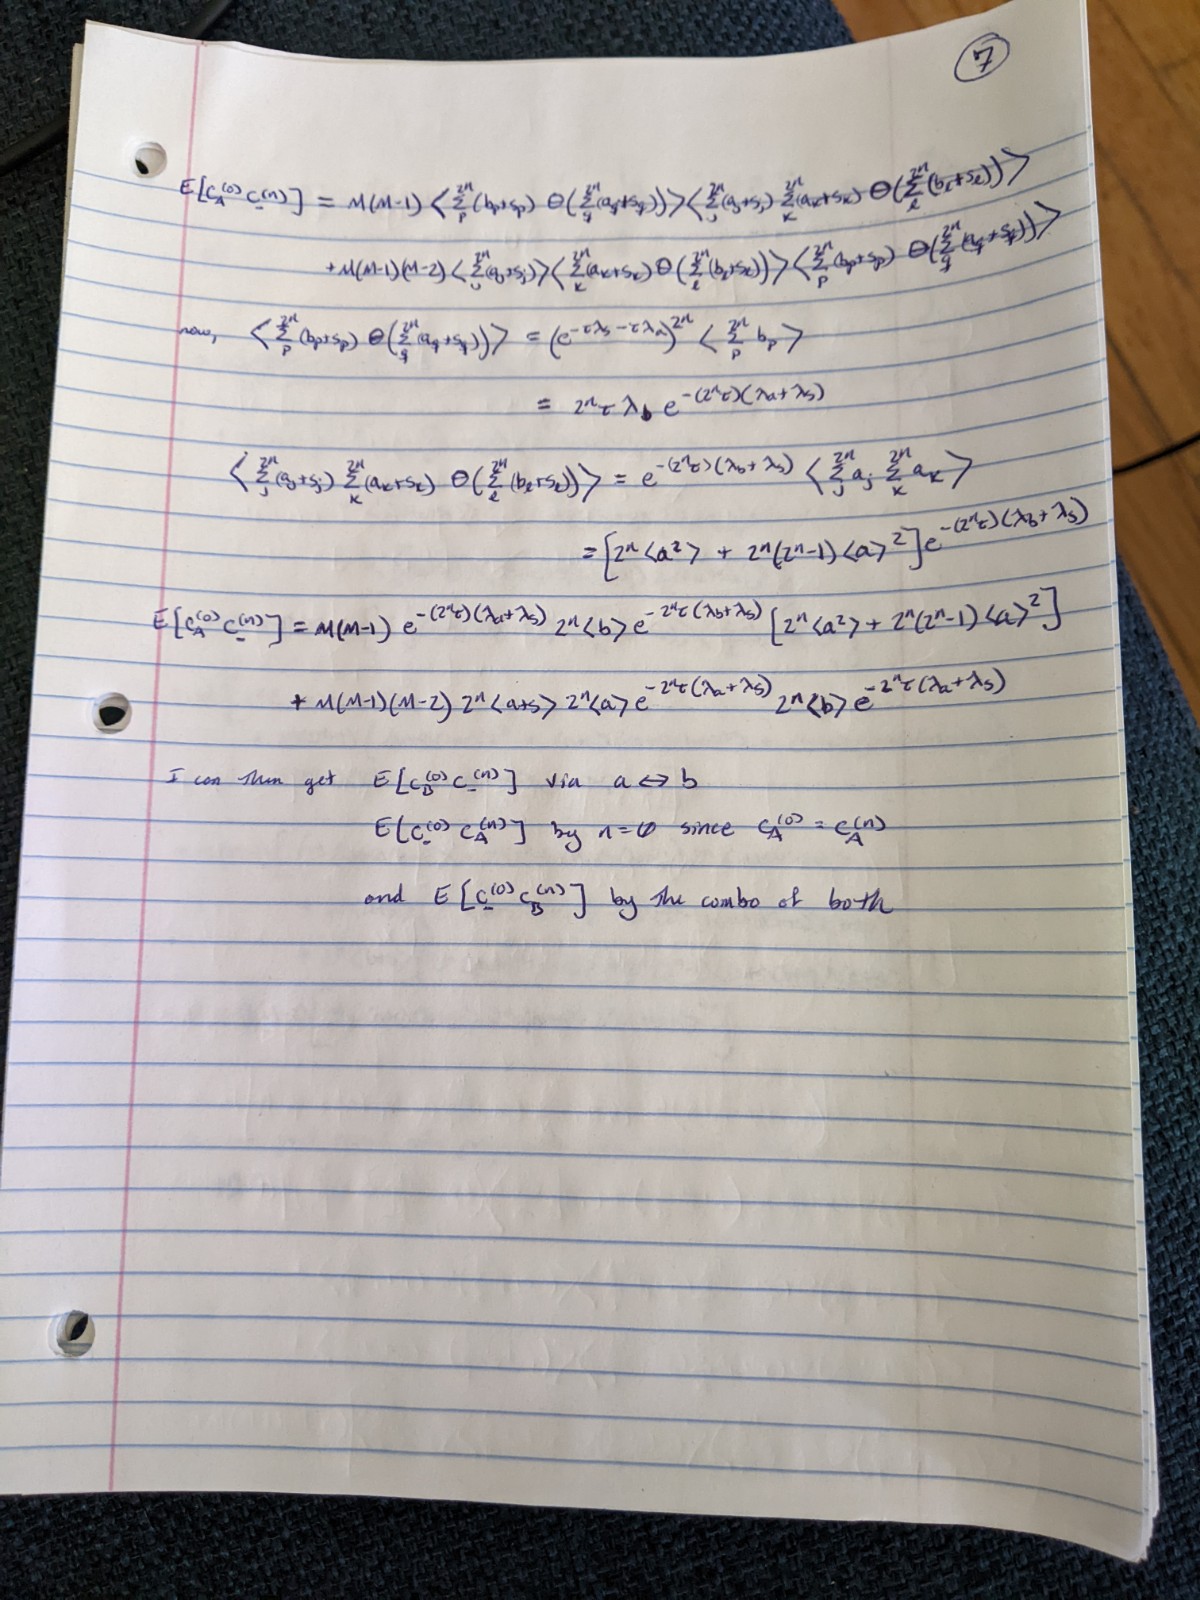 7
E[C_A^(0) C_-^(n)] = M(M-1) <Σ_p^{2^n} (b_p+s_p) Θ(Σ_q^{2^n} (a_q+s_q))> <Σ_j^{2^n} (a_j+s_j) Σ_k^{2^n} (a_k+s_k) Θ(Σ_ℓ^{2^n} (b_ℓ+s_ℓ))>
+ M(M-1)(M-2) <Σ_j^{2^n} (a_j+s_j)> <Σ_k^{2^n} (a_k+s_k) Θ(Σ_ℓ^{2^n} (b_ℓ+s_ℓ))> <Σ_p^{2^n} (b_p+s_p) Θ(Σ_q^{2^n} (a_q+s_q))>
now, <Σ_p^{2^n} (b_p+s_p) Θ(Σ_q^{2^n} (a_q+s_q))> = (e^{-τλ_s - τλ_a})^{2^n} <Σ_p^{2^n} b_p>
= 2^n τ λ_b e^{-(2^n τ)(λ_a+λ_s)}
<Σ_j^{2^n} (a_j+s_j) Σ_k^{2^n} (a_k+s_k) Θ(Σ_ℓ^{2^n} (b_ℓ+s_ℓ))> = e^{-(2^n τ)(λ_b+λ_s)} <Σ_j^{2^n} a_j Σ_k^{2^n} a_k>
= [2^n <a^2> + 2^n(2^n-1) <a>^2] e^{-(2^n τ)(λ_b+λ_s)}
E[C_A^(0) C_-^(n)] = M(M-1) e^{-(2^n τ)(λ_a+λ_s)} 2^n <b> e^{-2^n τ(λ_b+λ_s)} [2^n <a^2> + 2^n(2^n-1) <a>^2]
+ M(M-1)(M-2) 2^n <a+s> 2^n <a> e^{-2^n τ(λ_a+λ_s)} 2^n <b> e^{-2^n τ(λ_a+λ_s)}
I can then get E[C_B^(0) C_-^(n)] via a ↔ b
E[C_-^(0) C_A^(n)] by n=0 since C_A^(0) = C_A^(n)
and E[C_-^(0) C_B^(n)] by the combo of both